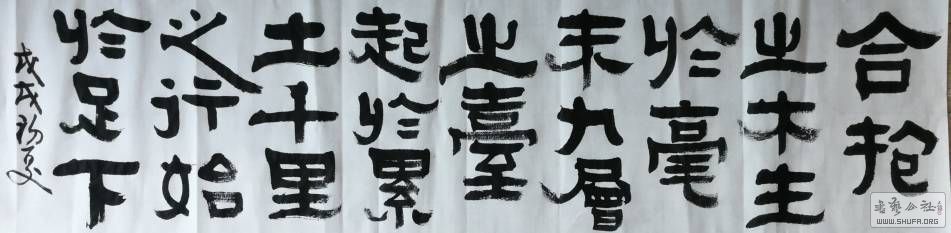 合抱
之木生
於毫
末九層
之臺
起於累
土千里
之行始
於足下
戊戌
書藝公社
WWW.SHUFA.ORG